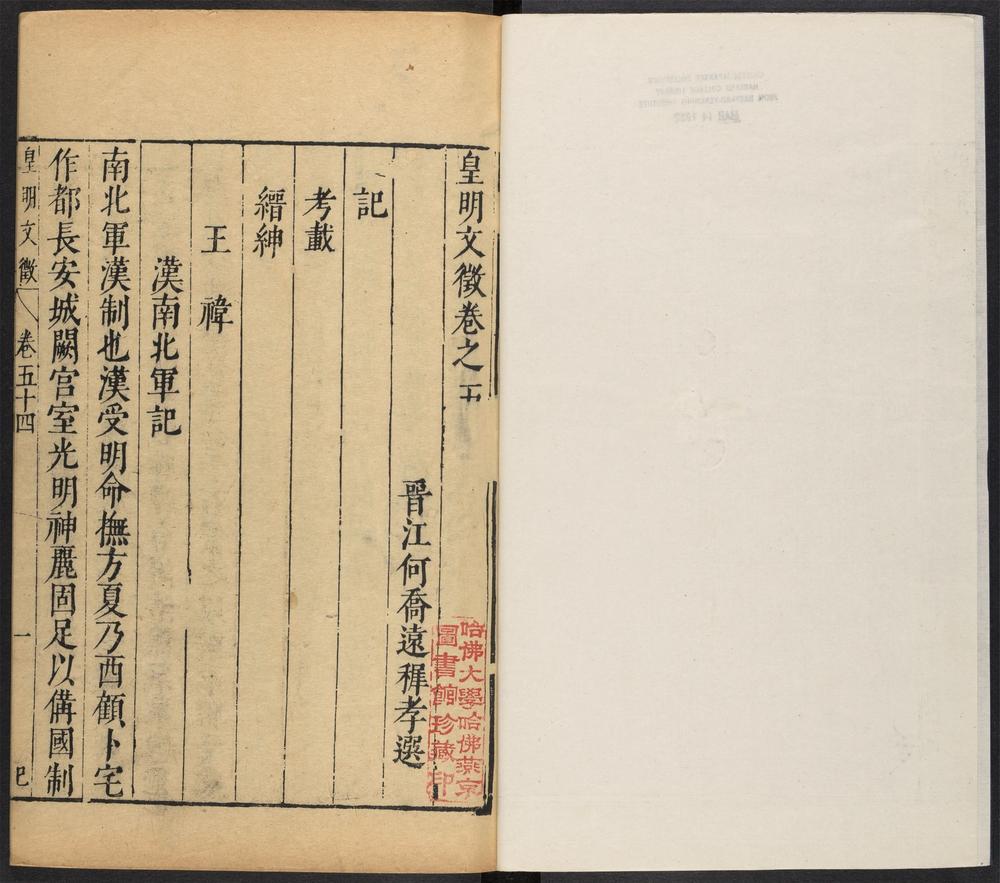 皇明文徵卷之五
晉江何喬遠穉孝選
記
考載
縉紳
王禕
漢南北軍記
南北軍漢制也漢受明命撫方夏乃西顧卜宅
作都長安城闕宮室光明神麗固足以備國制
皇明文徵
卷五十四
一
哈佛大學哈佛燕京
圖書館珍藏印